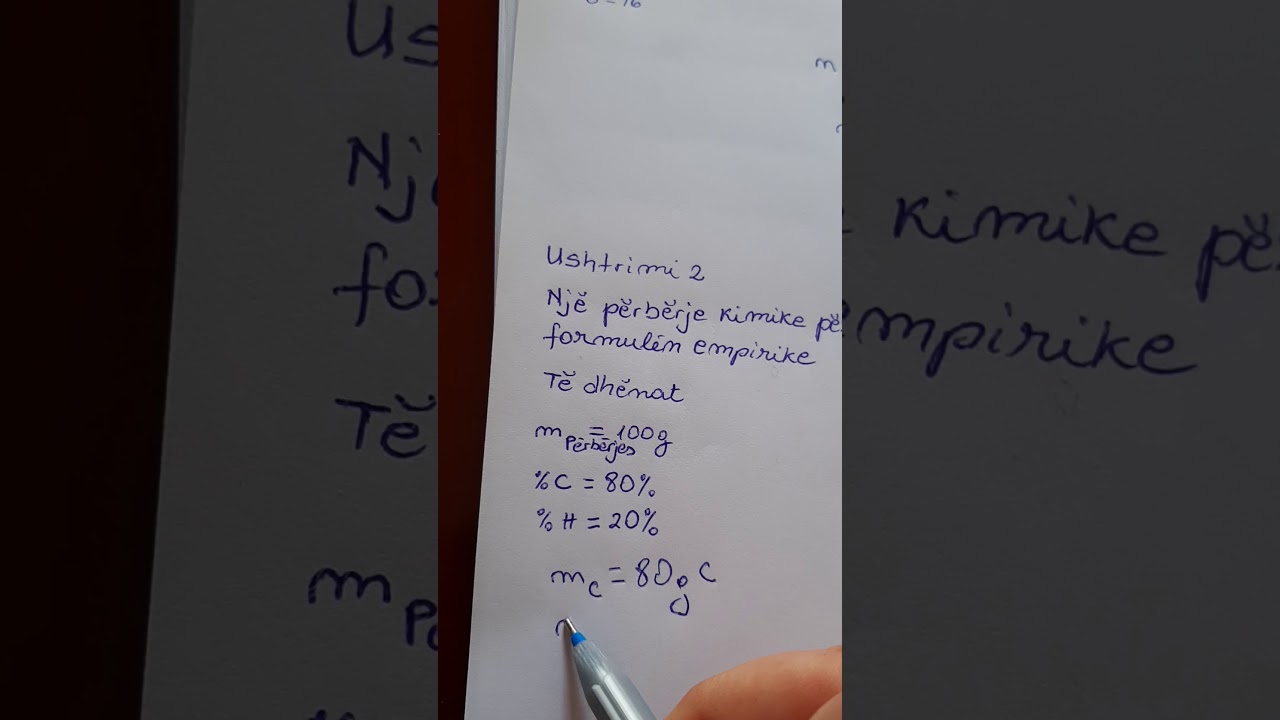 Ushtrimi 2
Një përbërje kimike
formulën empirike
Të dhënat
m përbërjes = 100g
%C = 80%
%H = 20%
mc = 80g C